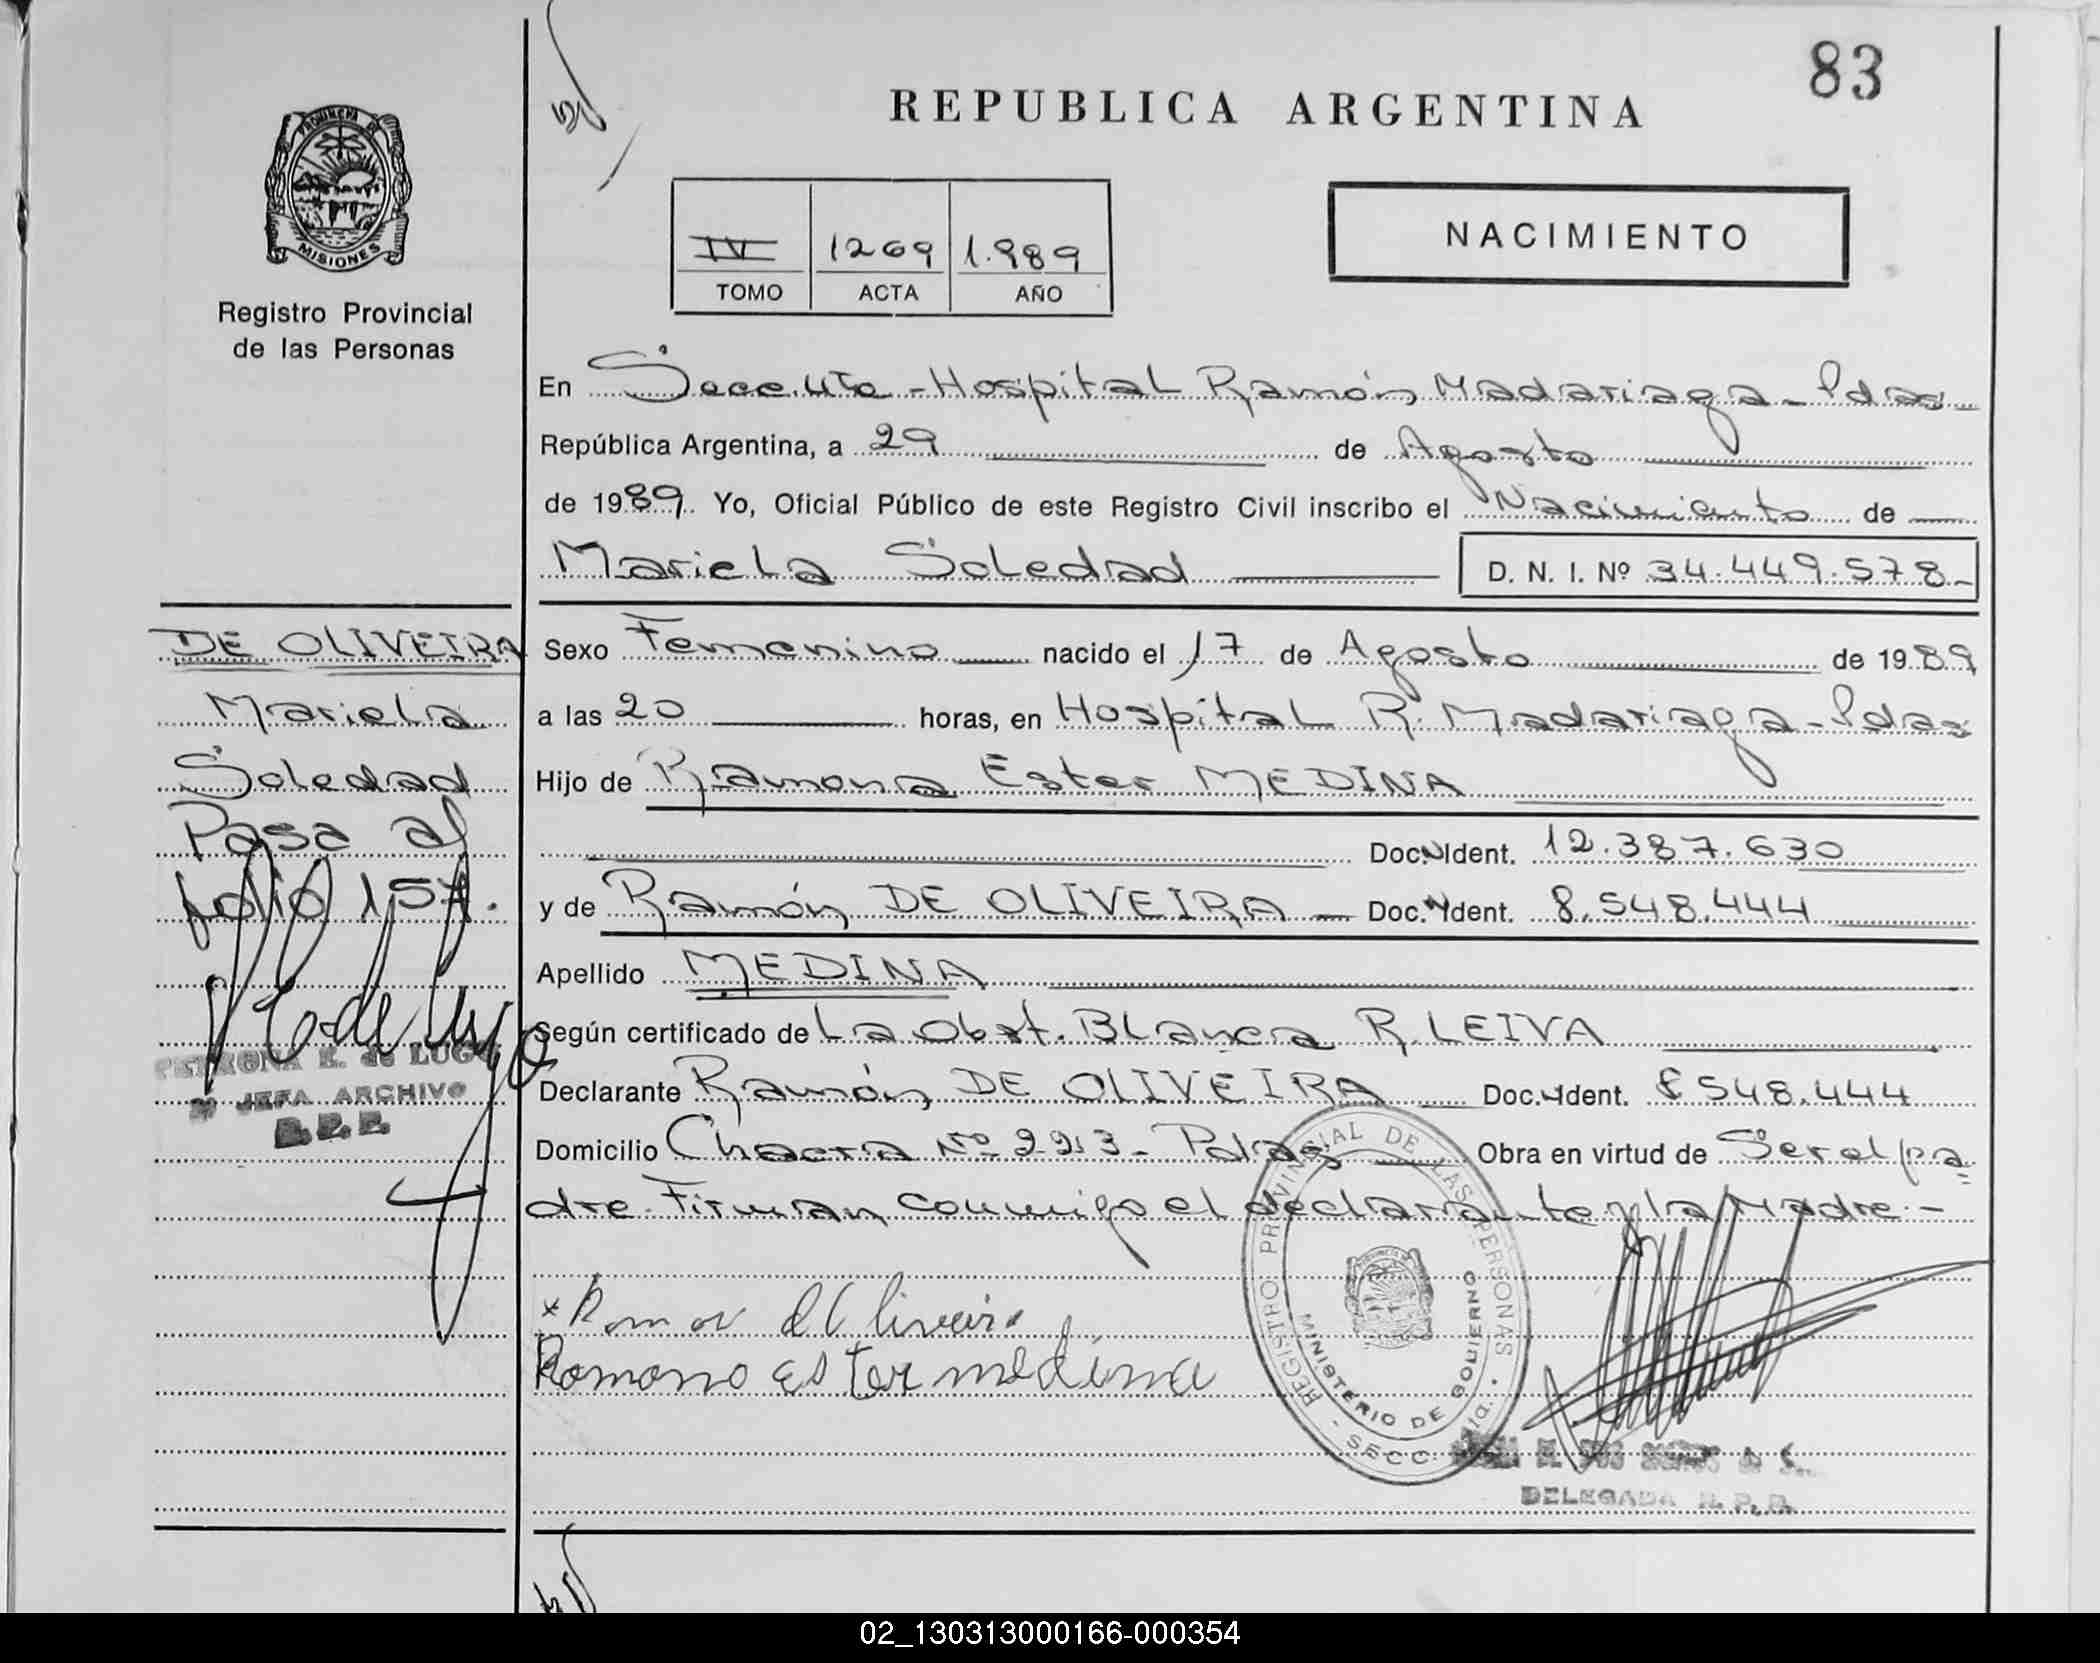 83
REPUBLICA ARGENTINA
PROVINCIA DE
MISIONES
Registro Provincial
de las Personas
IV 1269 1.989
TOMO ACTA AÑO
NACIMIENTO
En Secc. 4ta - Hospital Ramón Madariaga - Pdas
República Argentina, a 29 de Agosto
de 1989. Yo, Oficial Público de este Registro Civil inscribo el Nacimiento de
Mariela Soledad D. N. I. Nº 34.449.578-
DE OLIVEIRA
Mariela
Soledad
Pasa al
folio 157.
PETRONA E. de LUGO
JEFA ARCHIVO
R.P.P.
Sexo Femenino nacido el 17 de Agosto de 1989
a las 20 horas, en Hospital R. Madariaga - Pdas
Hijo de Ramona Ester MEDINA
Doc. Ident. 12.387.630
y de Ramón DE OLIVEIRA - Doc. Ident. 8.548.444
Apellido MEDINA
Según certificado de La Obst. Blanca R. LEIVA
Declarante Ramón DE OLIVEIRA Doc. Ident. 8548.444
Domicilio Chacra Nº 223 - Pdas Obra en virtud de Ser el pa
dre. Firman conmigo el declarante y la Madre.-
Ramona Ester medina
REGISTRO PROVINCIAL DE LAS PERSONAS
MINISTERIO DE GOBIERNO
SECC. 4ta.
DELEGADA R. P. P.
02_130313000166-000354